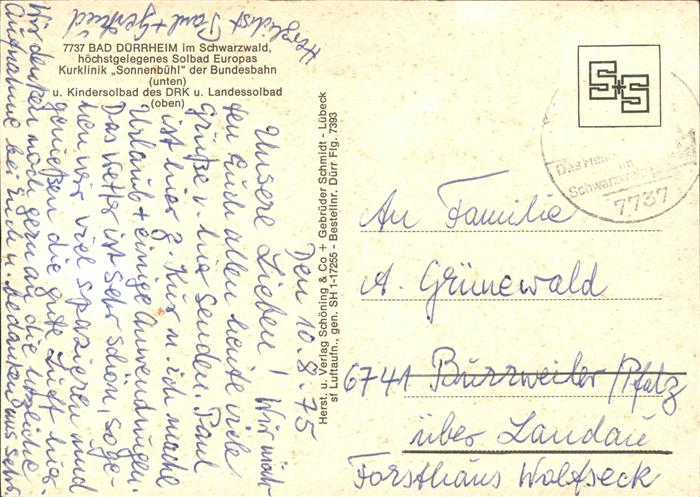 7737 BAD DÜRRHEIM im Schwarzwald,
höchstgelegenes Solbad Europas
Kurklinik „Sonnenbühl" der Bundesbahn
(unten)
u. Kindersolbad des DRK u. Landessolbad
(oben)
Den 10.8.75
Unsere Lieben! Wir möch-
ten Euch allen heute viele
Grüße v. hier senden. Paul
ist hier z. Kur u. ich mache
Urlaub + einige Anwendungen.
Das Wetter ist sehr schön, so ge-
hen wir viel spazieren und
genießen die gute Luft hier.
Wir denken noch gern an die herzliche
Aufnahme bei Euch u. bedanken uns sehr
Herzlichst Paul + Gertrud
Herst. u. Verlag Schöning & Co + Gebrüder Schmidt - Lübeck
sf Luftaufn., gen. SH 1-17255 - Bestellnr. Dürr Flg. 7393
S+S
Das Heil
im
Schwarzwald
7737
An Familie
A. Grünewald
6741 Burrweiler/Pfalz
über Landau
Forsthaus Wolfseck